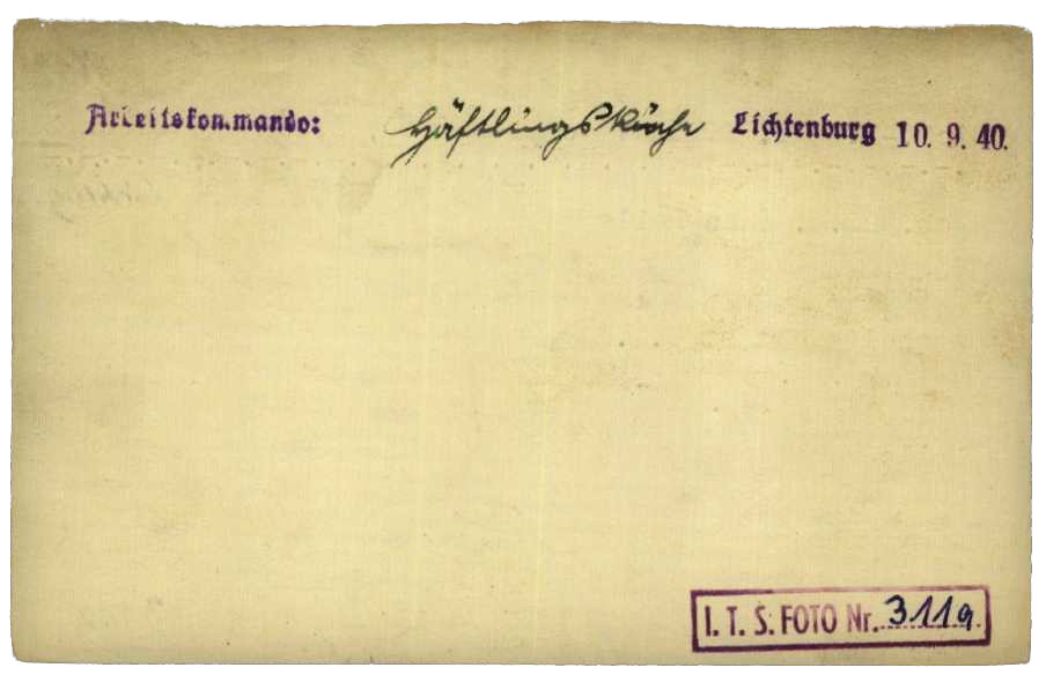 Arbeitskommando: Häftlingsküche Lichtenburg 10. 9. 40.
I. T. S. FOTO Nr. 3119